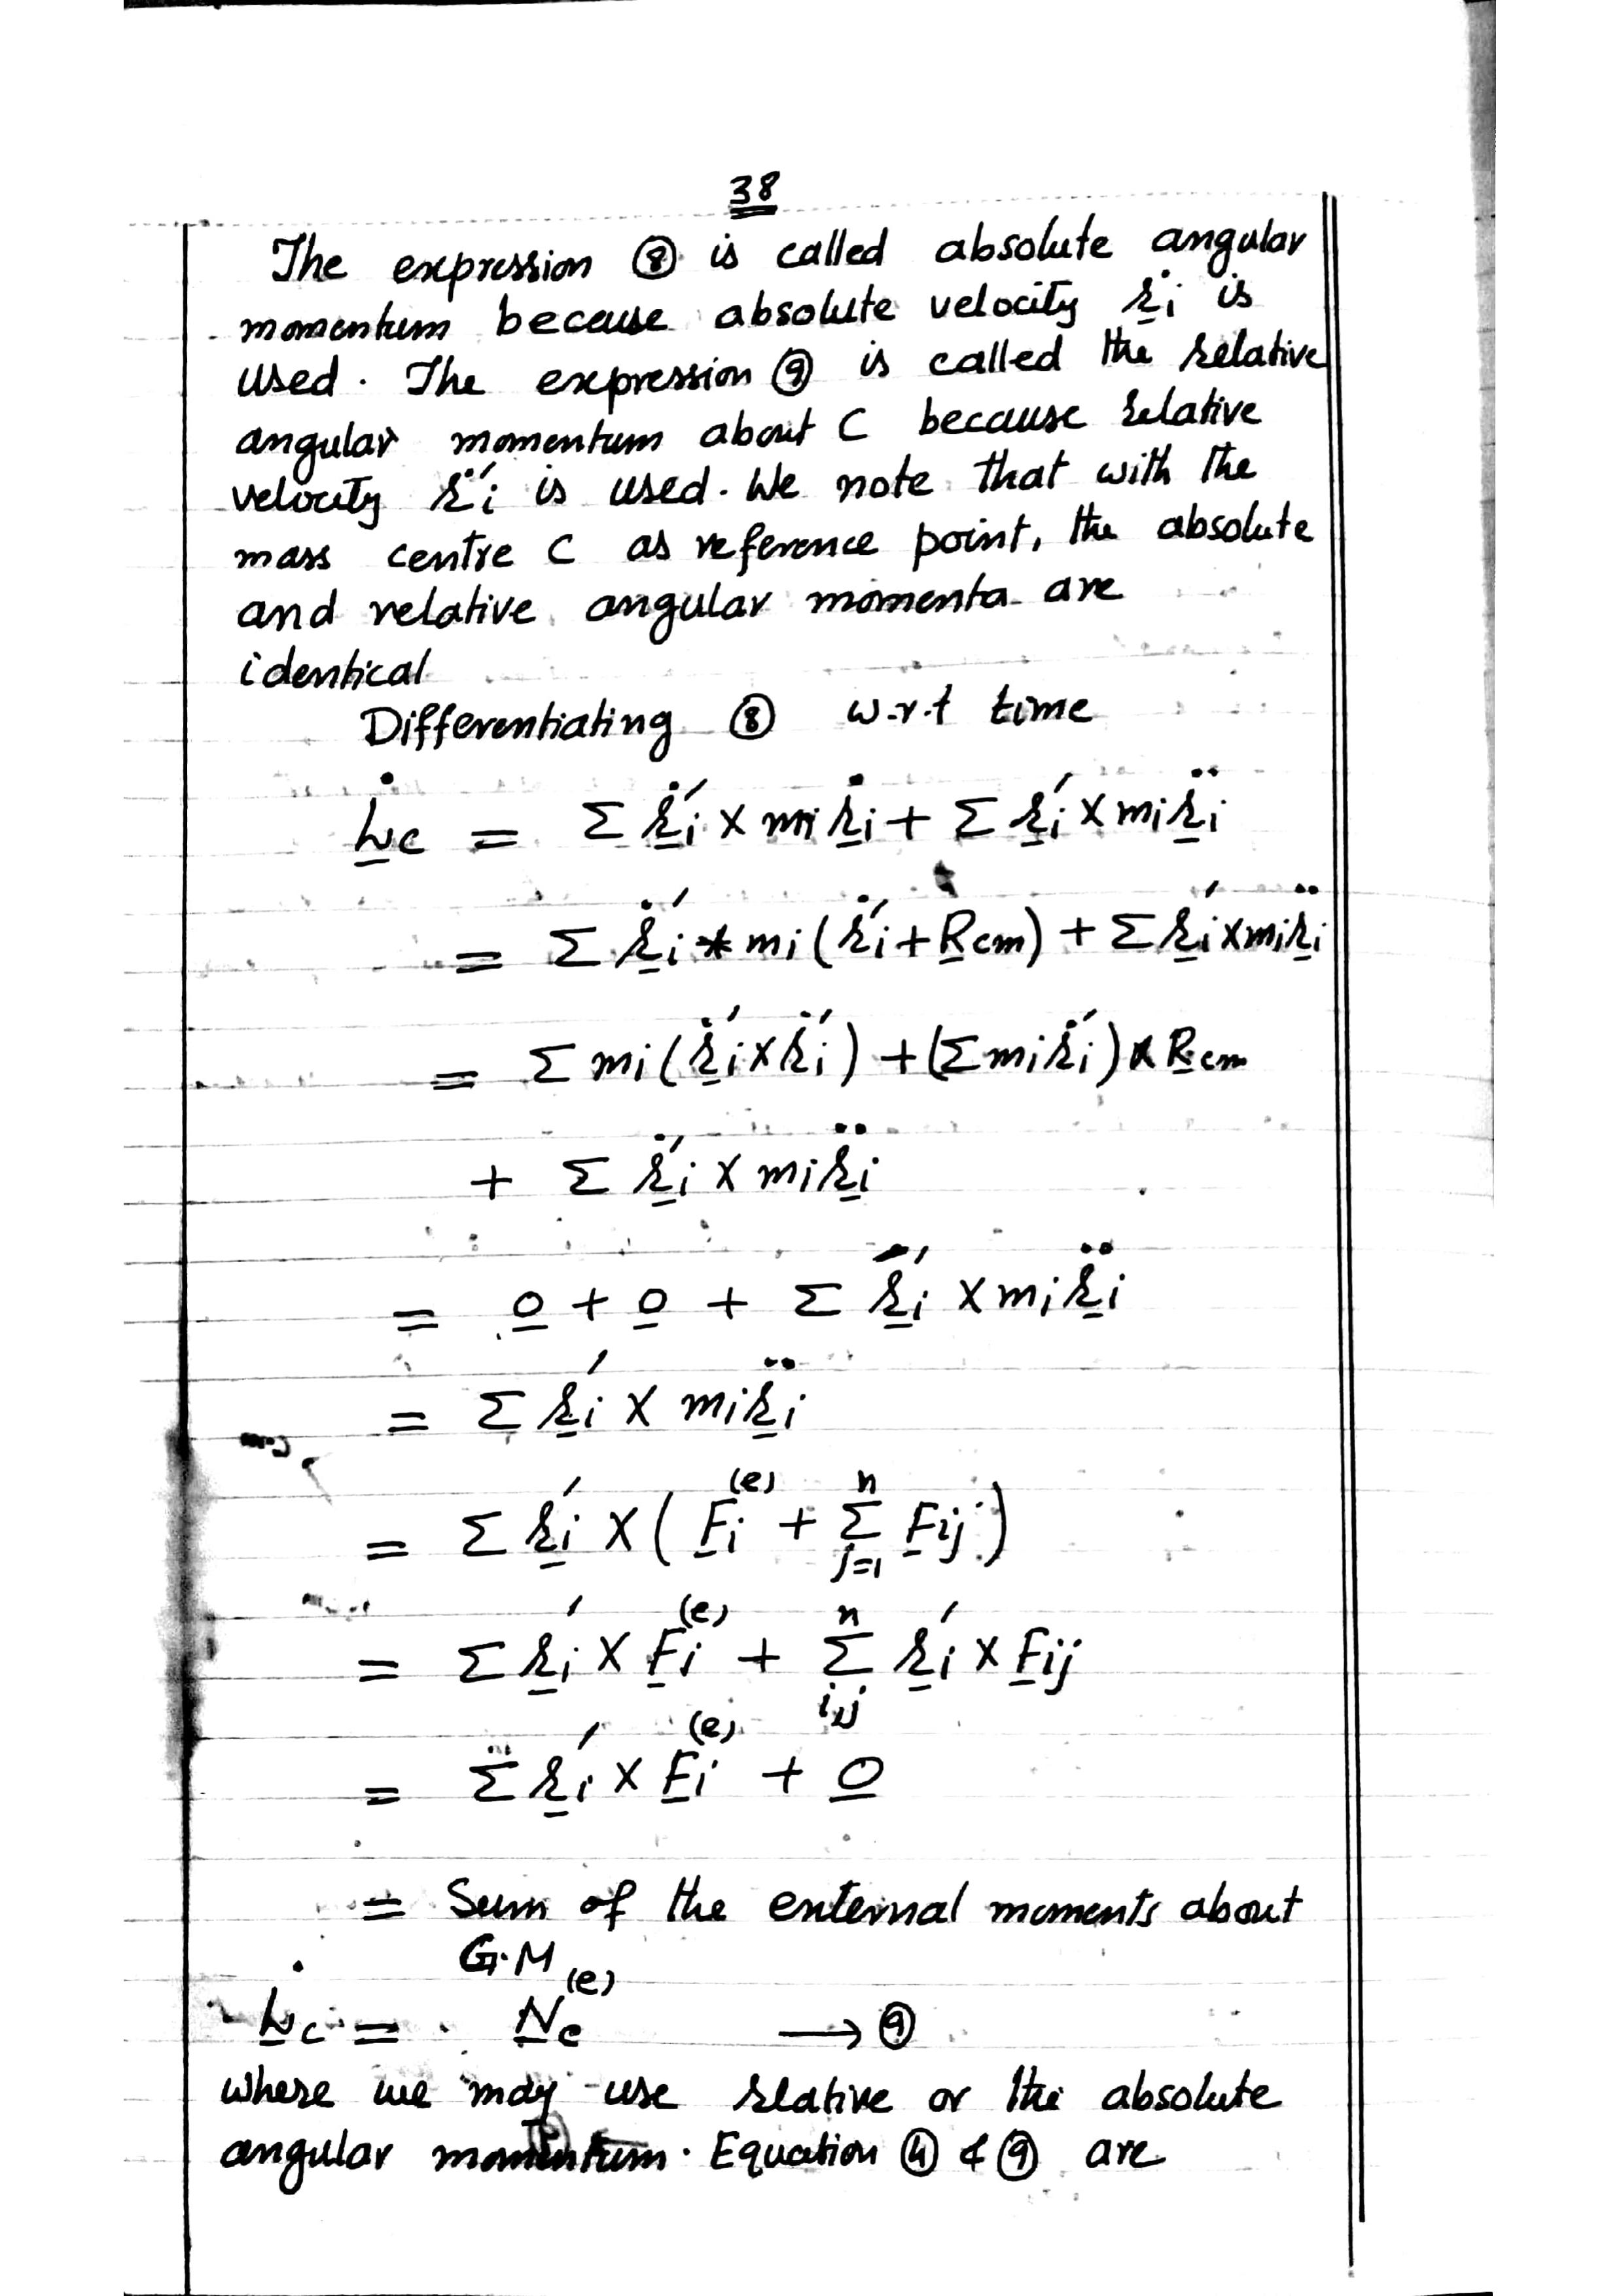 38
The expression ⑧ is called absolute angular
momentum because absolute velocity ṙi is
used. The expression ⑨ is called the relative
angular momentum about C because relative
velocity ṙ'i is used. We note that with the
mass centre C as reference point, the absolute
and relative angular momenta are
identical
Differentiating ⑧ w.r.t time
L̇c = Σ ṙ'i × mi ṙi + Σ r'i × mi r̈i
= Σ ṙ'i × mi (ṙ'i + Rcm) + Σ r'i × mi r̈i
= Σ mi (ṙ'i × ṙ'i) + (Σ mi ṙ'i) × Rcm
+ Σ ṙ'i × mi r̈i
= 0 + 0 + Σ r'i × mi r̈i
= Σ r'i × mi r̈i
= Σ r'i × ( Fi^(e) + Σ_{j=1}^{n} Fij )
= Σ r'i × Fi^(e) + Σ_{i,j}^{n} r'i × Fij
= Σ r'i × Fi^(e) + 0
= Sum of the enternal moments about
G.M
L̇c = Nc^(e) → ⑨
where we may use rlative or the absolute
angular momentum. Equation ④ & ⑨ are